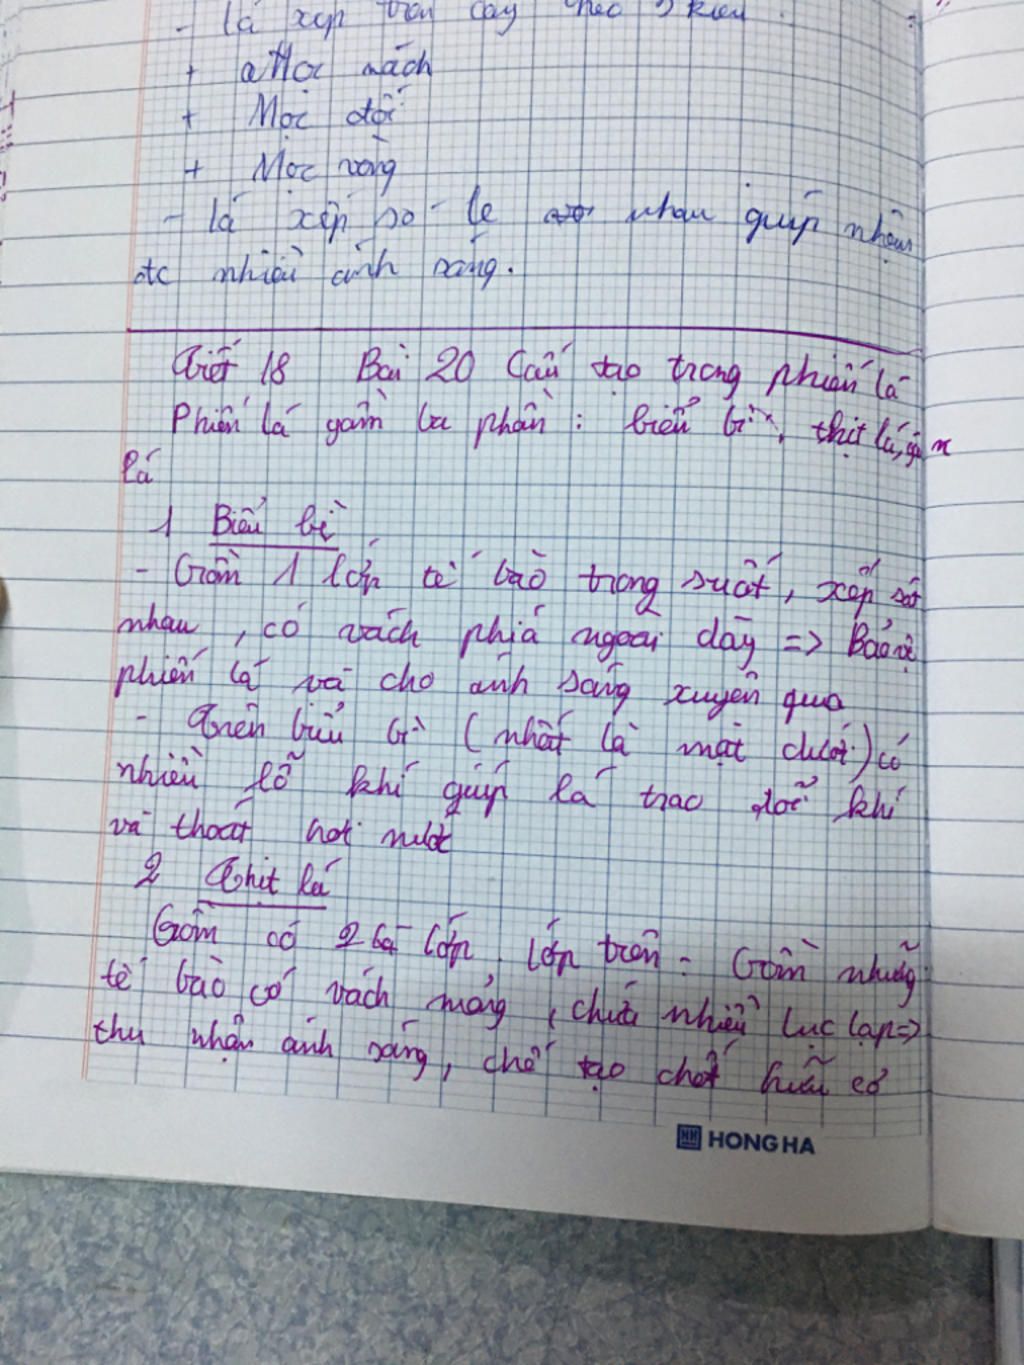 - lá xếp trên cây theo 3 kiểu
+ Mọc mách
+ Mọc đối
+ Mọc vòng
- lá xếp so le nhau giúp nhận
đc nhiều ánh sáng.
Tiết 18 Bài 20 Cấu tạo trong phiến lá
Phiến lá gồm ba phần : biểu bì, thịt lá, gân
lá
1 Biểu bì
- Gồm 1 lớp tế bào trong suốt, xếp sát
nhau, có vách phía ngoài dày => Bảo vệ
phiến lá và cho ánh sáng xuyên qua
- Trên biểu bì (nhất là mặt dưới) có
nhiều lỗ khí giúp lá trao đổi khí
và thoát hơi nước
2 Thịt lá
Gồm có 2 lớp, lớp trên : Gồm những
tế bào có vách mỏng, chứa nhiều lục lạp =>
thu nhận ánh sáng, chế tạo chất hữu cơ
HH HONG HA